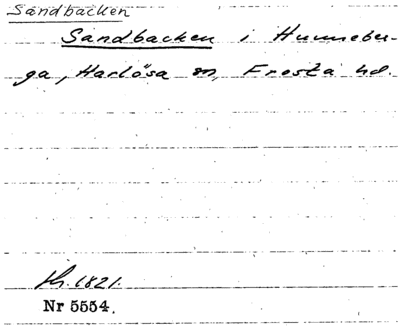 Sandbacken
Sandbacken i Hunneber-
ga, Harlösa sn, Frosta hd.
Kr. 1821.
Nr 5554.